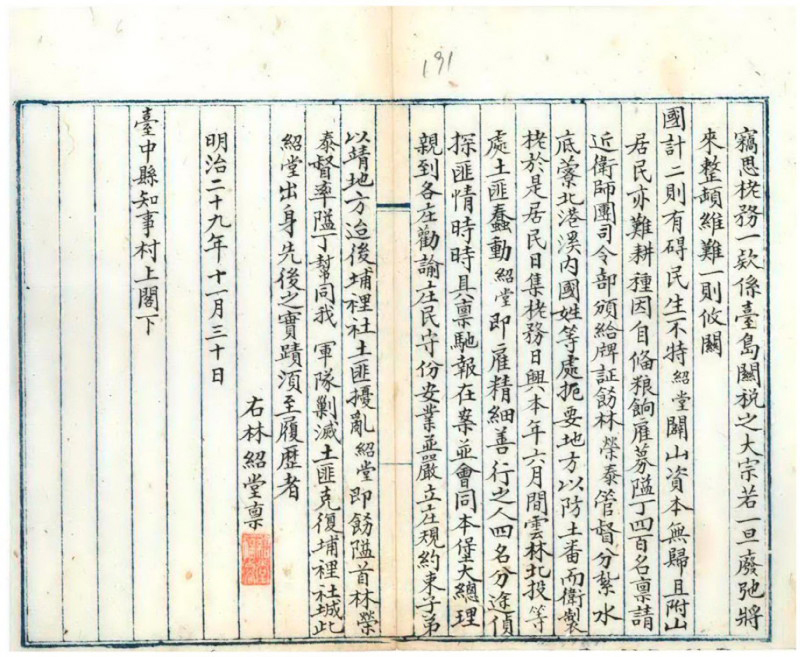 191
竊思栳務一欵係臺島關税之大宗若一旦廢弛將
來整頓維難一則攸關
國計二則有碍民生不特紹堂開山資本無歸且附山
居民亦難耕種因自俻粮餉雇募隘丁四百名禀請
近衛師團司令部頒給牌証飭林榮泰管督分紮水
底藔北港溪内國姓等處扼要地方以防土番而衛製
栳於是居民日集栳務日興本年六月間雲林北投等
處土匪蠢動紹堂即雇精細善行之人四名分途偵
探匪情時時具禀馳報在案並會同本堡大總理
親到各庄勸諭庄民守份安業並嚴立庄規約束子弟
以靖地方迨後埔裡社土匪擾亂紹堂即飭隘首林榮
泰督率隘丁幫同我 軍隊剿滅土匪克復埔裡社城此
紹堂出身先後之實蹟湏至履歷者
右林紹堂禀
明治二十九年十一月三十日
臺中縣知事村上閣下